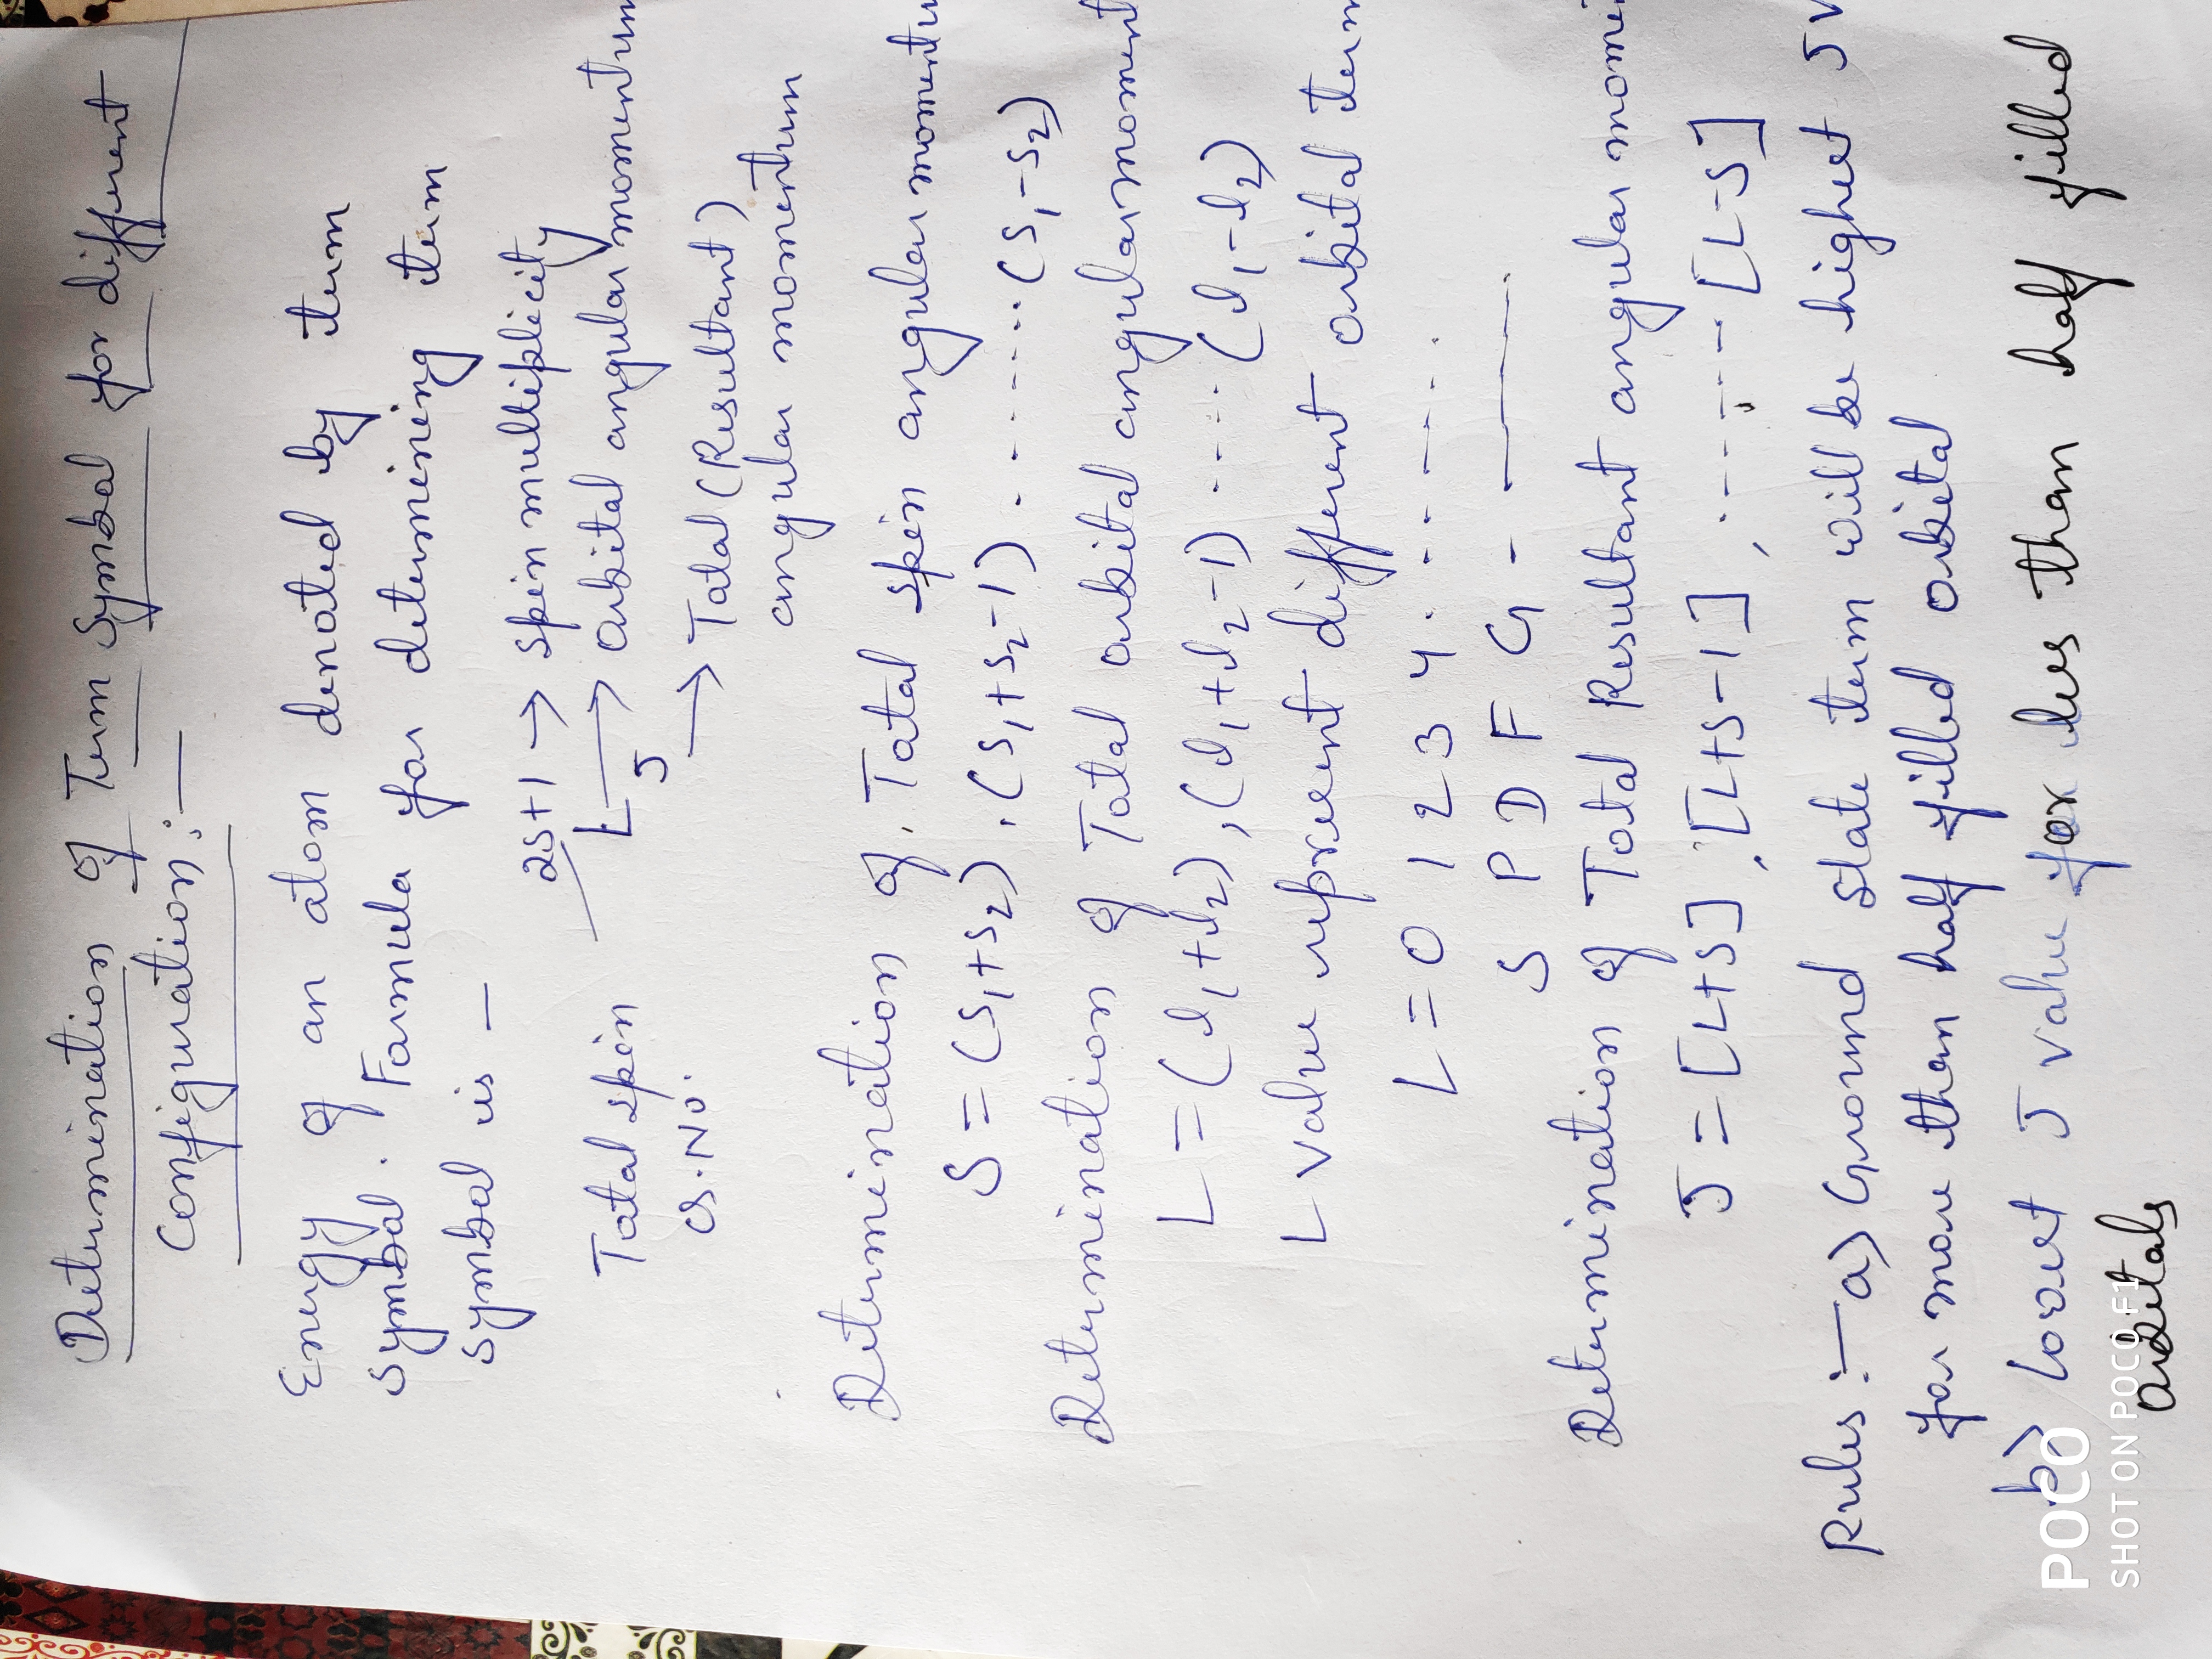 Determination of Term Symbol for different
Configuration :—
Energy of an atom denoted by term
symbol. Formula for determining term
symbol is —
2s+1 → spin multiplicity
L → orbital angular momentum
Total spin
J → Total (Resultant)
Q.No.
angular momentum
Determination of. Total spin angular momentu
S = (s1+s2), (s1+s2-1) ........ (s1-s2)
Determination of Total orbital angular moment
L = (l1+l2), (l1+l2-1) ...... (l1-l2)
L value represent different orbital term
L = 0 1 2 3 4 ........
S P D F G - ——
Determination of Total Resultant angular mome
J = [L+S], [L+S-1], ....... [L-S]
Rules :— a) Ground state term will be highest J v
for more than half filled orbital
b) lowest J value for les than half filled
orbitals
POCO
SHOT ON POCO F1